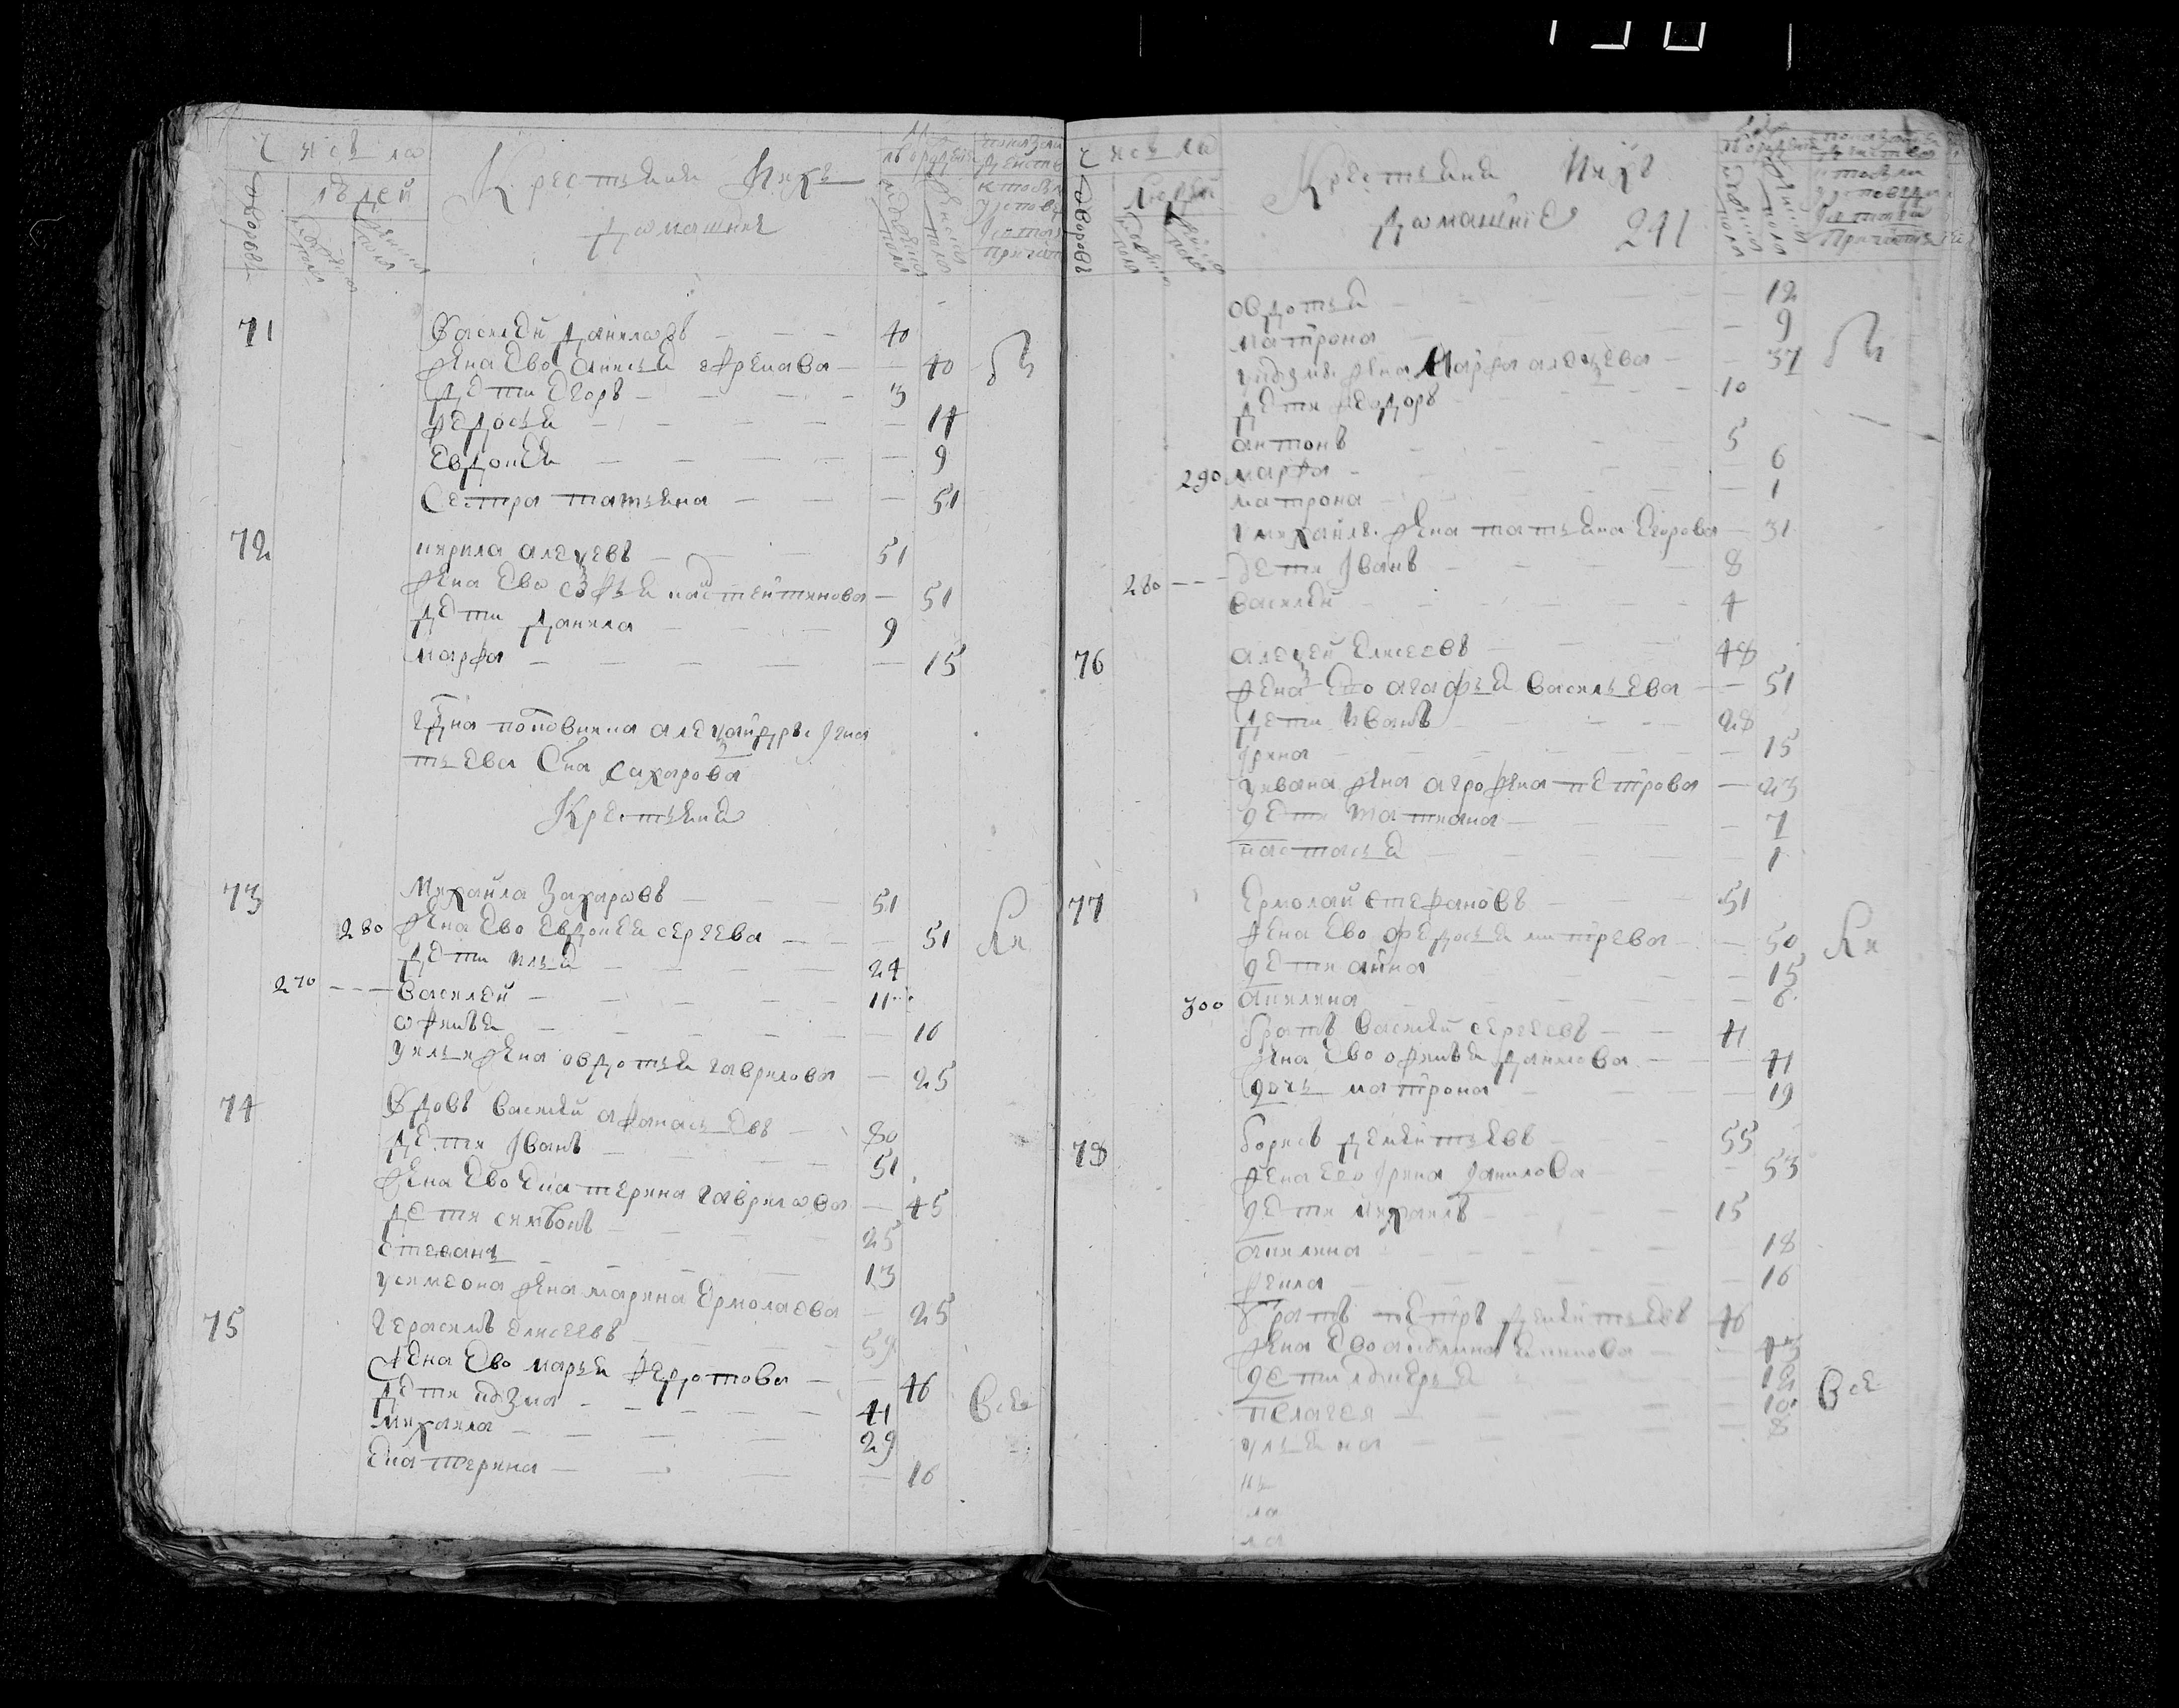 число
людей
дворовъ
Крестьяне Ихъ
домашние
71 Василей Даниловъ 40
жена Ево Анисья Ефремова 40
дети Егоръ 3
Федосья 14
Евдокея 9
Сестра татьяна 51
72 кирила алеѯевъ 51
жена Ево софья костентинова 51
дети Данила 9
марфа 15
гдна поповича
тьева сна сахарова
Крестьяне
73 Михайла Захаровъ 51
280 жена Ево Евдокея сергева 51
дети илья 24
270 Василей 11
офимья 16
у ильи жена овдотья гаврилова 25
74 Вдовъ василей афанасьевъ 80
дети Iванъ 51
жена Ево Екатерина гаврилова 45
дети симеонъ 25
степанъ 13
у симеона жена марина Ермолаева 25
75 герасимъ елисеевъ 59
жена Ево марья федотова 46
дети козма 41
михаила 29
Екатерина 16
Все
число
людей
дворовъ
Крестьяне Ихъ
домашние 241
овдотья 12
матрона 9
жена Марфа алеѯева 37
дети феодоръ 10
антонъ 5
290 марфа 6
матрона 1
жена татьяна Егорова 31
280 дети Iванъ 8
василей 4
76 алеѯей Елисеевъ 48
жена Ево агафья васильева 51
дети Иванъ 28
Iрина 15
у ивана жена агрофена петрова 23
дети татиана 7
настасья 1
77 Ермолай стефановъ 51
жена Ево федосья митрева 50
дети анна 15
300 акилина 6
братъ василей сергеевъ 41
жена Ево офимья данилова 41
дочь матрона 19
78 борисъ дементьевъ 55
жена Его Iрина данилова 53
дети михаилъ 15
акилина 18
фекла 16
братъ петръ дементьевъ 46
жена Ево 43
дети лукерья 12
пелагея 10
ульяна 8
Все